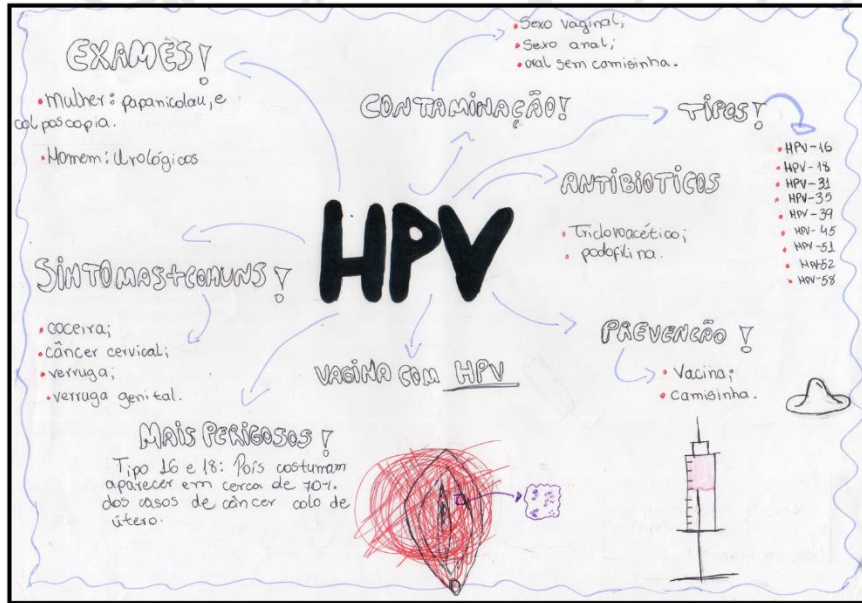 EXAMES!
• Mulher: papanicolau, e
colposcopia.
• Homem: Urológicos
• Sexo vaginal;
• Sexo anal;
• oral sem camisinha.
CONTAMINAÇÃO!
TIPOS!
• HPV-16
• HPV-18
• HPV-31
• HPV-35
• HPV-39
• HPV-45
• HPV-51
• HPV-52
• HPV-58
ANTIBIOTICOS
• Tricloroacético;
• podofilina.
HPV
SINTOMAS + COMUNS!
• coceira;
• câncer cervical;
• verruga;
• verruga genital.
PREVENÇÃO!
• Vacina;
• Camisinha.
VAGINA COM HPV
MAIS PERIGOSOS!
Tipo 16 e 18: Pois costumam
aparecer em cerca de 70%
dos casos de câncer colo de
útero.